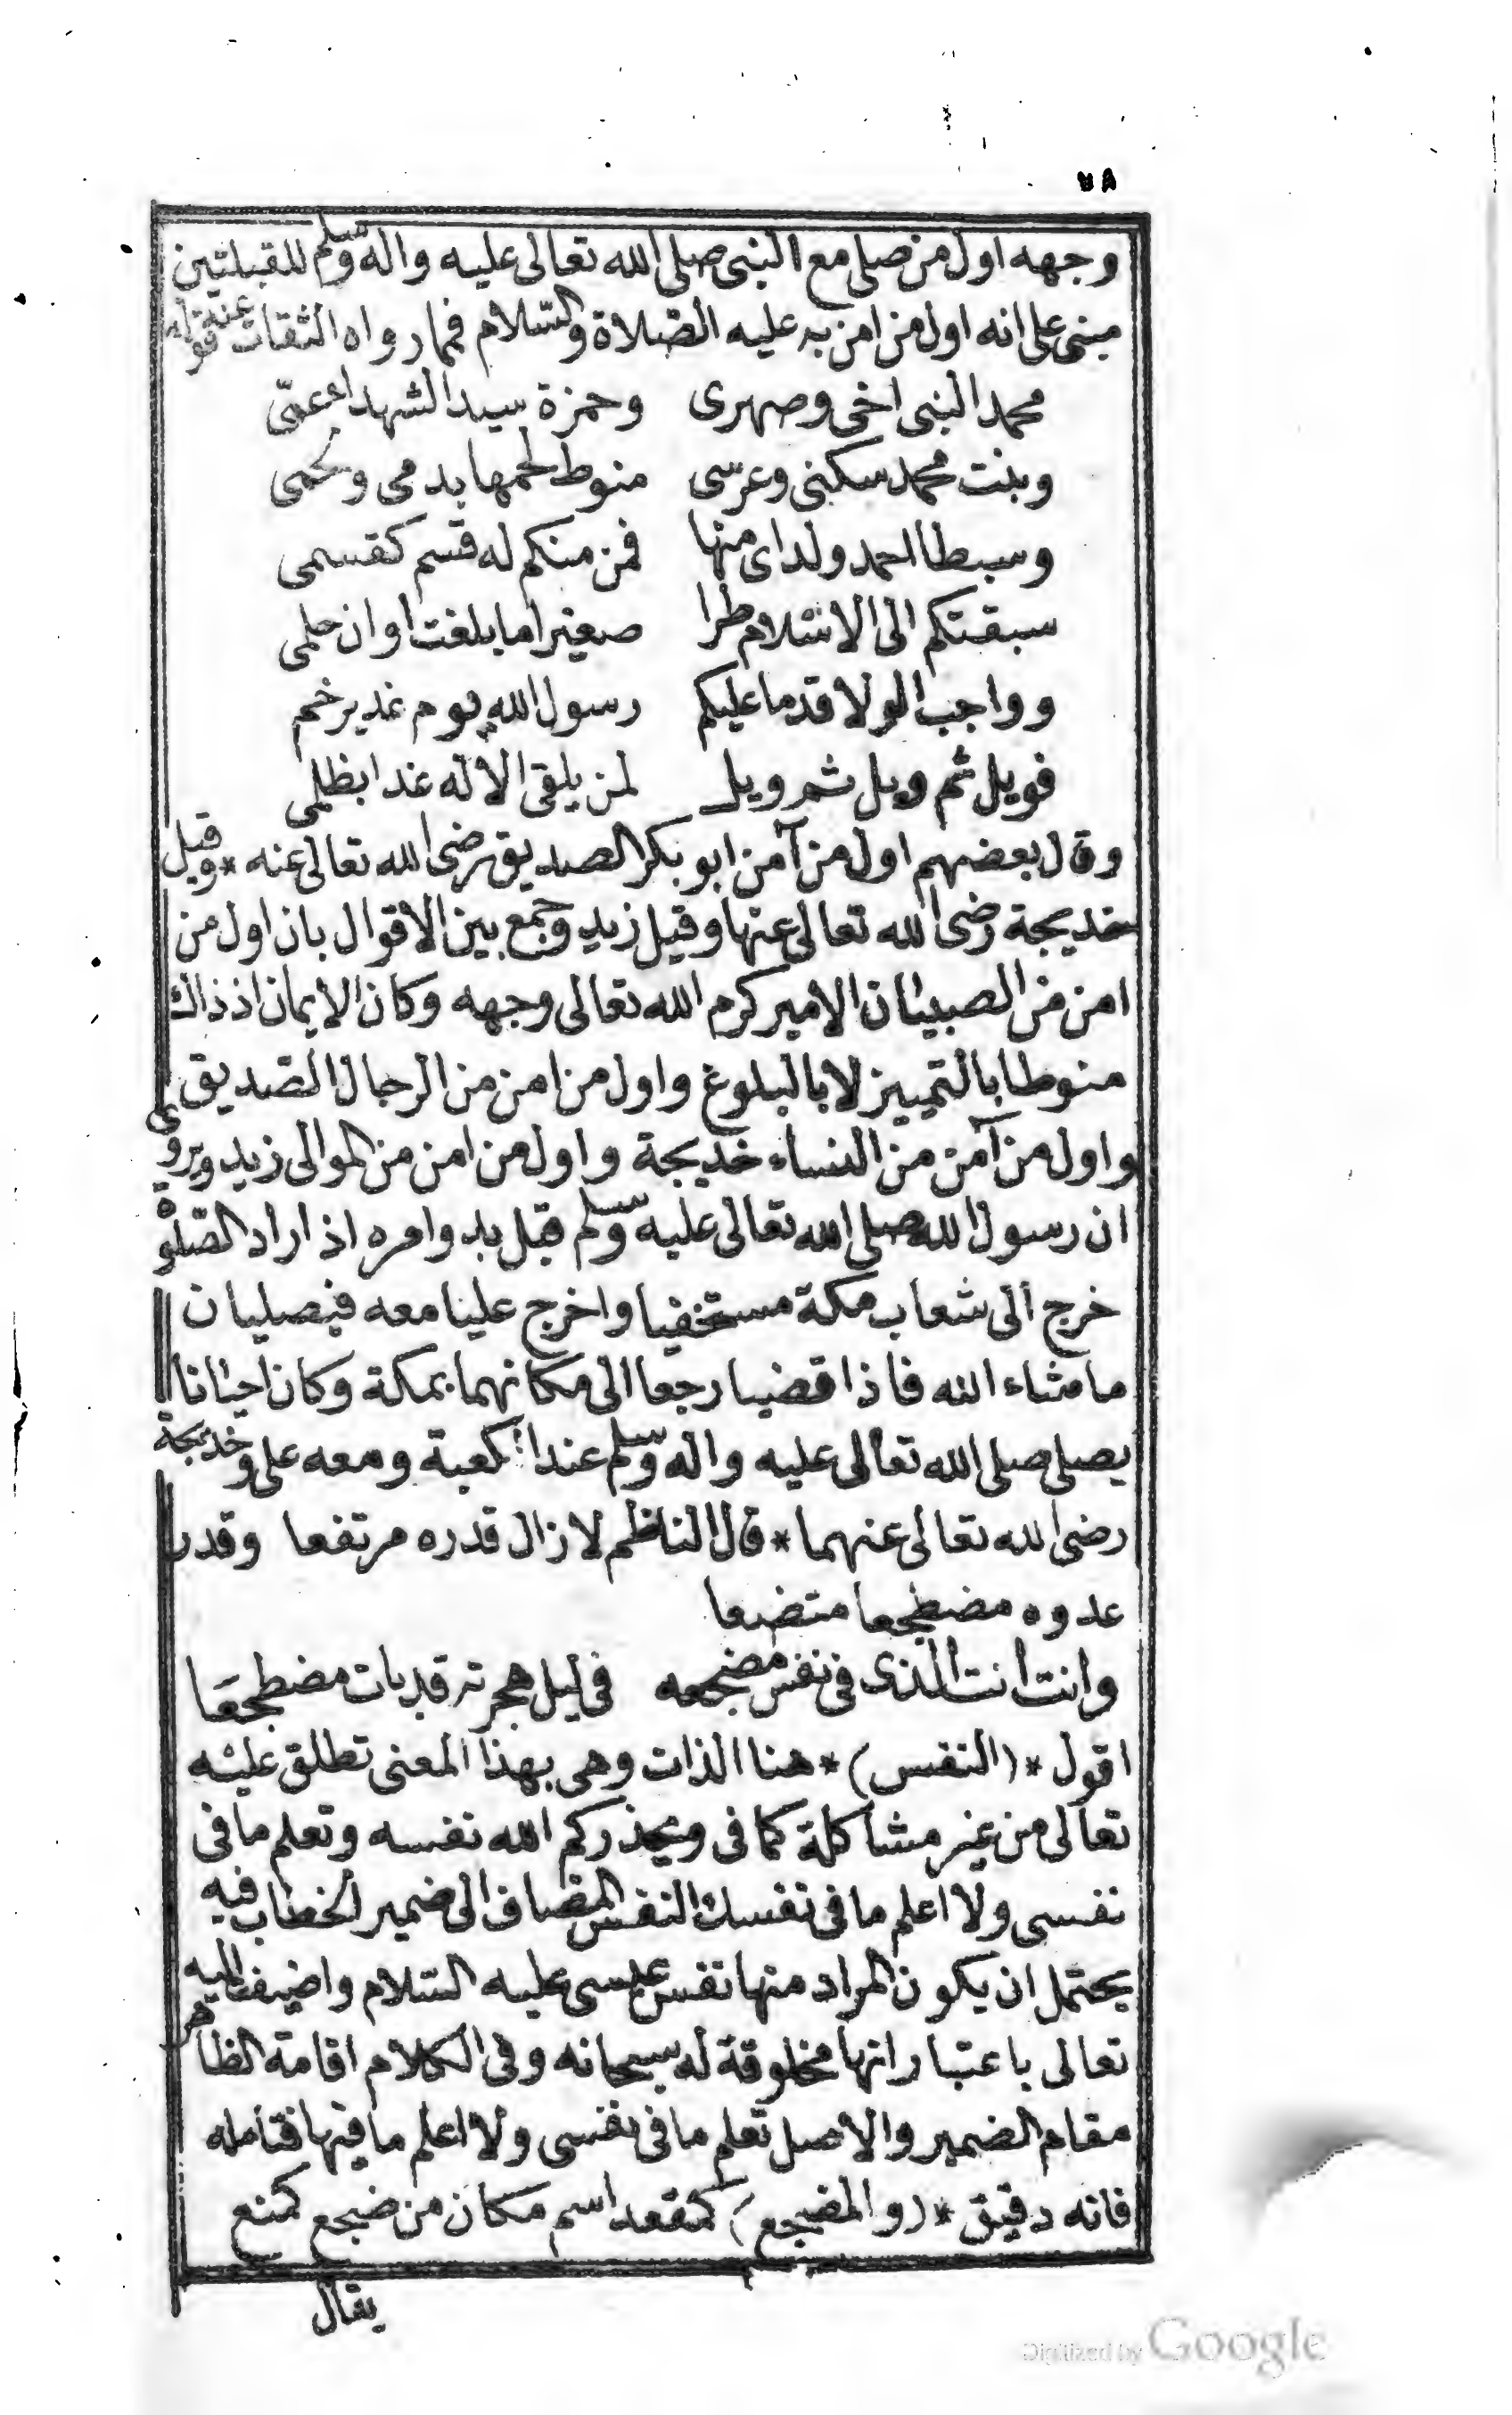 ٧٨
وجهه اول من صلى مع النبى صلى الله تعالى عليه واله وسلم للقبلتين
مبنى على انه اول من امن به عليه الصّلاة والسّلام فمما رواه الثقات عنه قوله
محمد النبى اخى وصهرى وحمزة سيد الشهداء عمّى
وبنت محمد سكنى وعرسى منوط لحمها بدمى ولحمى
وسبطا احمد ولداى منها فمن منكم له قسم كقسمى
سبقتكم الى الاسلام طرا صغيرا ما بلغت اوان حلمى
وواجب الولا قدما عليكم رسول الله يوم غدير خم
فويل ثم ويل ثم ويل لمن يلقى الاله غدا بظلمى
وقال بعضهم اول من آمن ابو بكر الصديق رضى الله تعالى عنه * وقيل
خديجة رضى الله تعالى عنها وقيل زيد وجمع بين الاقوال بان اول من
امن من الصبيان الامير كرم الله تعالى وجهه وكان الايمان اذ ذاك
منوطا بالتمييز لا بالبلوغ واول من امن من الرجال الصّديق
واول من آمن من النساء خديجة واول من امن من الموالى زيد ويروى
ان رسول الله صلى الله تعالى عليه وسلم قبل بدو امره اذ اراد الصّلوة
خرج الى شعاب مكة مستخفيا واخرج عليا معه فيصليان
ما شاء الله فاذا قضيا رجعا الى مكانهما بمكة وكان احيانا
يصلى صلى الله تعالى عليه واله وسلم عند الكعبة ومعه على وخديجة
رضى الله تعالى عنهما * قال الناظم لا زال قدره مرتفعا وقدر
عدوه مضطجعا متضعا
وانت انت الذى فى نفس مضجعه فى ليل هجرته قد بات مضطجعَا
اقول * (النفس) * هنا الذات وهى بهذا المعنى تطلق عليه
تعالى من غير مشاكلة كما فى ويحذركم الله نفسه وتعلم ما فى
نفسى ولا اعلم ما فى نفسك النفس المضاف الى ضمير الخطاب فيه
يحتمل ان يكون المراد منها نفس عيسى عليه السّلام واضيف اليه
تعالى باعتبار انها مخلوقة له سبحانه وفى الكلام اقامة الظاهر
مقام الضمير والاصل تعلم ما فى نفسى ولا اعلم ما فيها فتامله
فانه دقيق * (والمضجع) كمقعد اسم مكان من ضجع كمنع
يقال
Digitized by Google